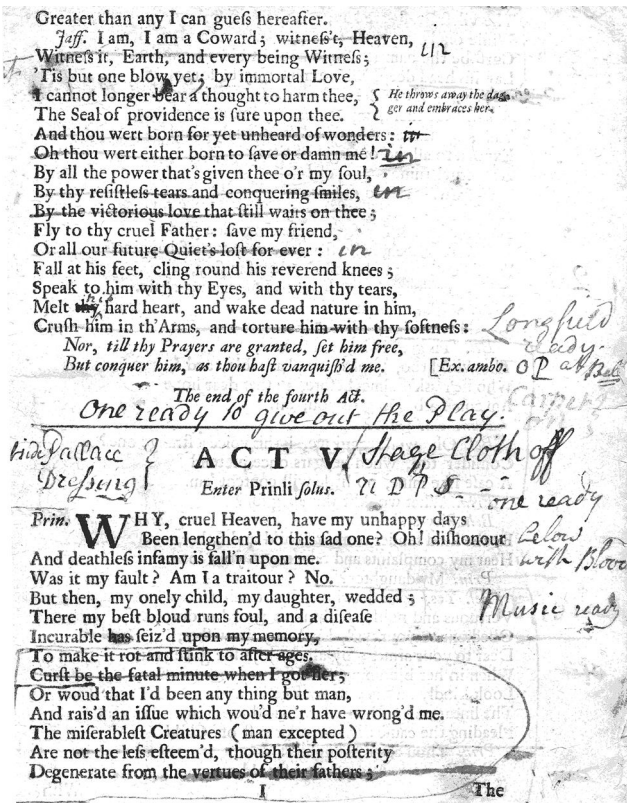 Greater than any I can gueſs hereafter.
Jaff. I am, I am a Coward; witneſs't, Heaven,
Witneſs it, Earth, and every being Witneſs; in
'Tis but one blow yet; by immortal Love,
I cannot longer bear a thought to harm thee, { He throws away the dag-
The Seal of providence is ſure upon thee. { ger and embraces her.
And thou wert born for yet unheard of wonders: in
Oh thou wert either born to ſave or damn me! in
By all the power that's given thee o'r my ſoul,
By thy reſiſtleſs tears and conquering ſmiles, in
By the victorious love that ſtill waits on thee;
Fly to thy cruel Father: ſave my friend,
Or all our future Quiet's loſt for ever: in
Fall at his feet, cling round his reverend knees;
Speak to him with thy Eyes, and with thy tears,
Melt thy his hard heart, and wake dead nature in him,
Cruſh him in th'Arms, and torture him with thy ſoftneſs: Longfield
Nor, till thy Prayers are granted, ſet him free, ready.
But conquer him, as thou haſt vanquiſh'd me. [Ex. ambo. OP at
The end of the fourth Act.
One ready to give out the Play.
Pallace } ACT V. Stage Cloth off
Dressing } Enter Prinli ſolus.
one ready
Prin. WHY, cruel Heaven, have my unhappy days
Been lengthen'd to this ſad one? Oh! diſhonour below
And deathleſs infamy is fall'n upon me. with Blood
Was it my fault? Am I a traitour? No.
But then, my onely child, my daughter, wedded; Music ready
There my beſt bloud runs foul, and a diſeaſe
Incurable has ſeiz'd upon my memory,
To make it rot and ſtink to after ages.
Curſt be the fatal minute when I got her;
Or woud that I'd been any thing but man,
And rais'd an iſſue which wou'd ne'r have wrong'd me.
The miſerableſt Creatures (man excepted)
Are not the leſs eſteem'd, though their poſterity
Degenerate from the vertues of their fathers;
I The